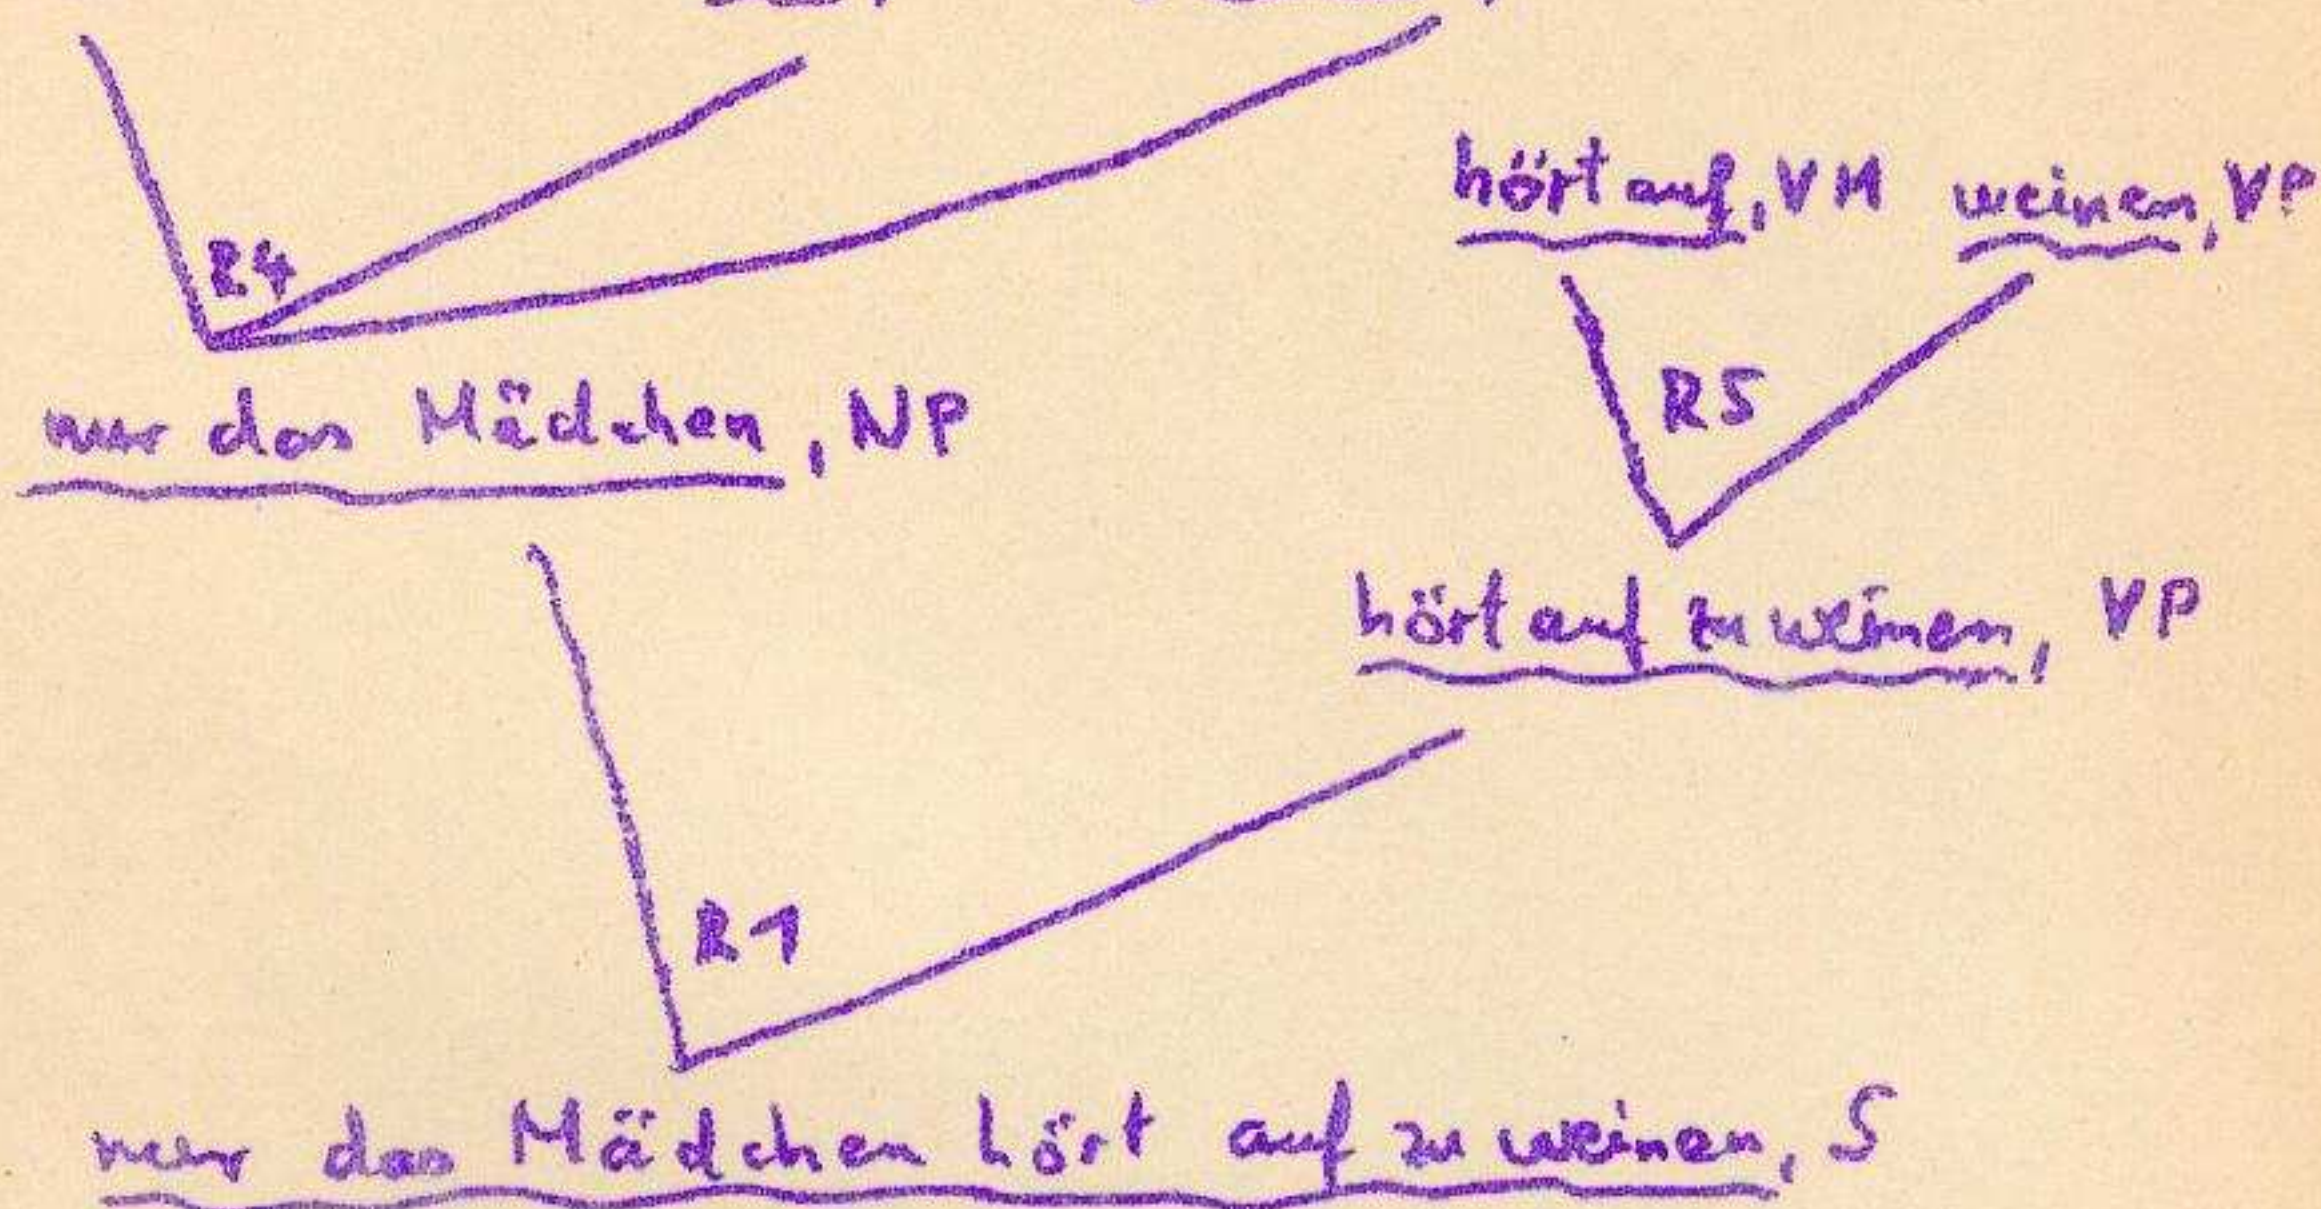 R4
hört auf, VM weinen, VP
R5
nur das Mädchen, NP
hört auf zu weinen, VP
R1
nur das Mädchen hört auf zu weinen, S